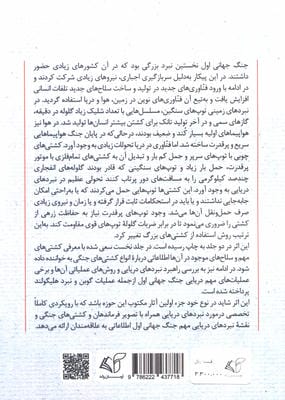 جنگ جهانی اول نخستین نبرد بزرگی بود که در آن کشورهای زیادی حضور
داشتند. در این پیکار به‌دلیل سربازگیری اجباری، نیروهای زیادی شرکت کردند و
در ادامه با ورود فناوری‌های جدید در تولید و ساخت سلاح‌های جدید تلفات انسانی
افزایش یافت و به‌تبع آن فناوری‌های نوین در زمین، هوا و دریا استفاده گردید. در
نبردهای زمینی توپ‌های سنگین، مسلسل‌هایی با تعداد شلیک زیاد گلوله در دقیقه،
گازهای سمی و در آخر تولید تانک برای کشتن بیشتر انسان‌ها تولید شد. در هوا نیز
هواپیماهای اولیه بسیار کند و ضعیف بودند، درحالی‌که در پایان جنگ هواپیماهایی
سریع و پرقدرت ساخته شد. اما فناوری در دریا تحولات زیادی به وجود آورد. کشتی‌های
چوبی با توپ‌های سرپر و حمل کم بار و تبدیل آن به کشتی‌های تمام‌فلزی با موتور
پرقدرت، حمل بار زیاد و توپ‌های سنگینی که قادر بودند گلوله‌های انفجاری
چندصد کیلوگرمی را به مسافت‌های دور پرتاب کنند، تحولی عظیم در نبردهای
دریایی به وجود آورد. این کشتی‌ها توپ‌هایی حمل می‌کردند که یا به‌راحتی امکان
جابه‌جایی نداشتند و یا باید در استحکامات ثابت قرار گرفته و یا زمان و نیروی زیادی
صرف حمل‌ونقل آن‌ها می‌شد. وجود توپ‌های پرقدرت نیاز به حفاظت زرهی از
کشتی را ضروری می‌نمود تا در برابر ضربات گلولهٔ توپ‌های قوی مقاومت کند. به‌این
ترتیب روش استفاده از کشتی‌های بزرگ تغییر کرد.
این اثر در دو جلد به چاپ رسیده است. در جلد نخست سعی شده با معرفی کشتی‌های
مهم و سلاح‌های موجود در آن‌ها اطلاعاتی دربارهٔ انواع کشتی‌های جنگی به خواننده داده
شود. در ادامه نیز به بررسی راهبرد نبردهای دریایی و روش‌های عملیاتی آن‌ها و برخی
عملیات‌های مهم دریایی جنگ جهانی اول ازجمله عملیات گوبن و نبرد هلیگولند
پرداخته شده است.
این اثر شاید در نوع خود جزء اولین آثار مکتوب این حوزه باشد که با رویکردی کاملاً
تخصصی درمورد نبردهای دریایی همراه با تصویر فرماندهان و کشتی‌های جنگی و
نقشهٔ نبردهای مهم دریایی جنگ جهانی اول اطلاعاتی به علاقه‌مندان ارائه می‌دهد.
9 786222 437718